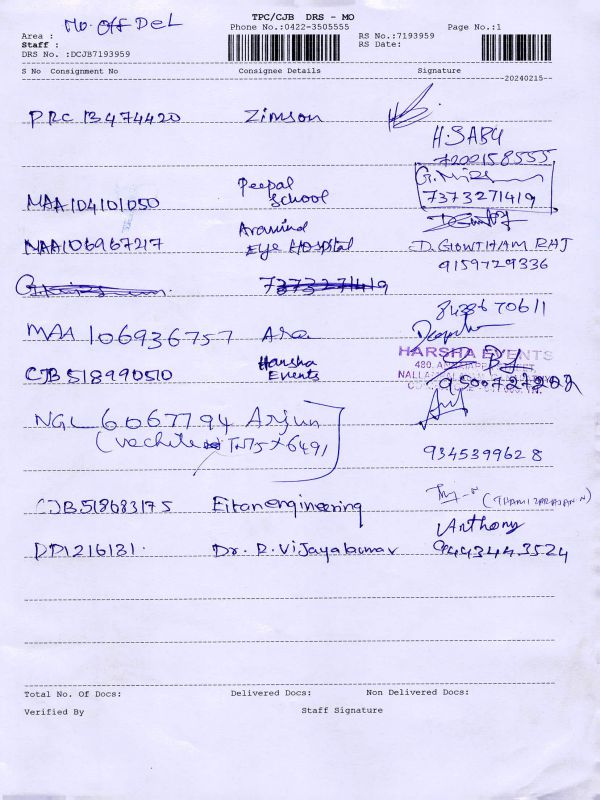 Mo. Off Del
TPC/CJB DRS - MO
Area :
Phone No.:0422-3505555
Page No.:1
Staff :
RS No.:7193959
RS Date:
DRS No. :DCJB7193959
S No Consignment No Consignee Details Signature
20240215
PRC 13474420 Zimson
H. SABU
7200158555
MAA104101050 Peepal School
7373271419
MAA106967217 Aravind Eye Hospital
D. GOWTHAM RAJ
9159729336
7373271419
8438670611
MAA 106936757
Deepika
CJB518990510 Harsha Events
HARSHA EVENTS
9500727202
NGL 6067794 Arjun
(vechile TN75X6491
9345399628
CJB518683175 Eitan engineering
(THAMIZARAJAN N)
Anthony
DD1216131. Dr. R. Vijayakumar 9443443524
Total No. Of Docs: Delivered Docs: Non Delivered Docs:
Verified By Staff Signature